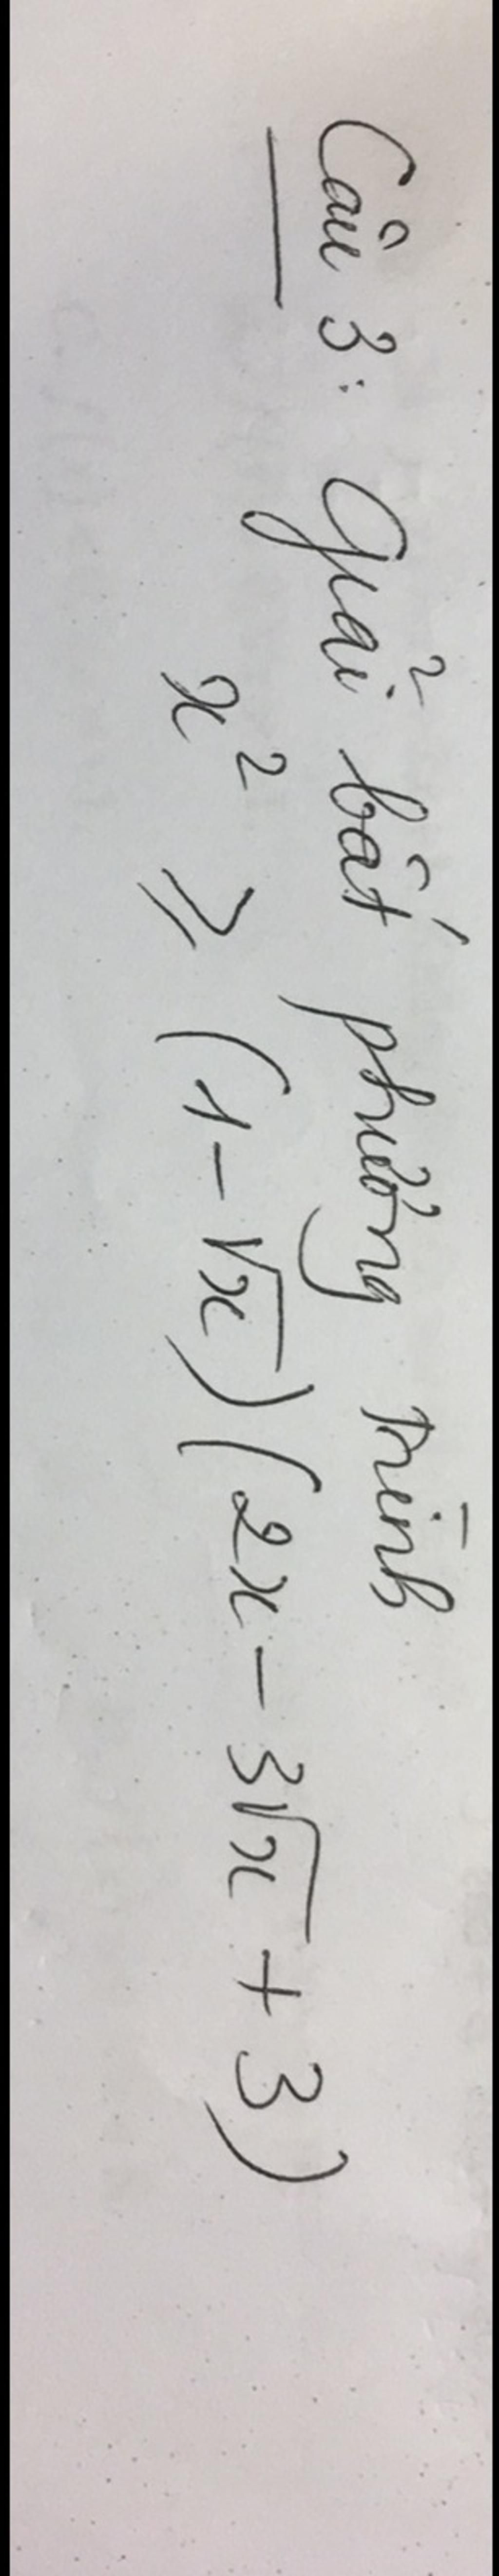 Câu 3: Giải bất phương trình
x² ⩾ (1 - √x)(2x - 3√x + 3)